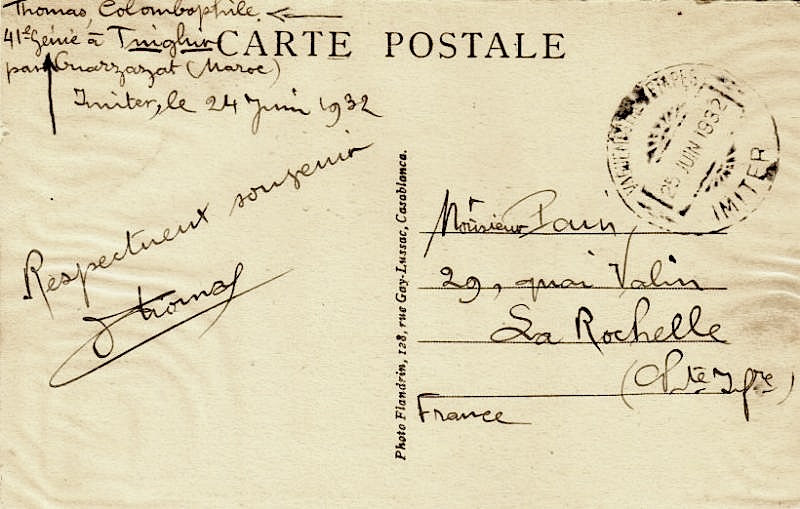 Thomas, Colombophile.
41e Génie à Tinghir
par Ouarzazat (Maroc)
CARTE POSTALE
Imiter, le 24 Juin 1932
Respectueux souvenir
Thomas
Photo Flandrin, 128, rue Gay-Lussac, Casablanca.
ETAPES
25 JUIN 1932
IMITER
Monsieur
29, quai Valin
La Rochelle
(Chte Infre)
France